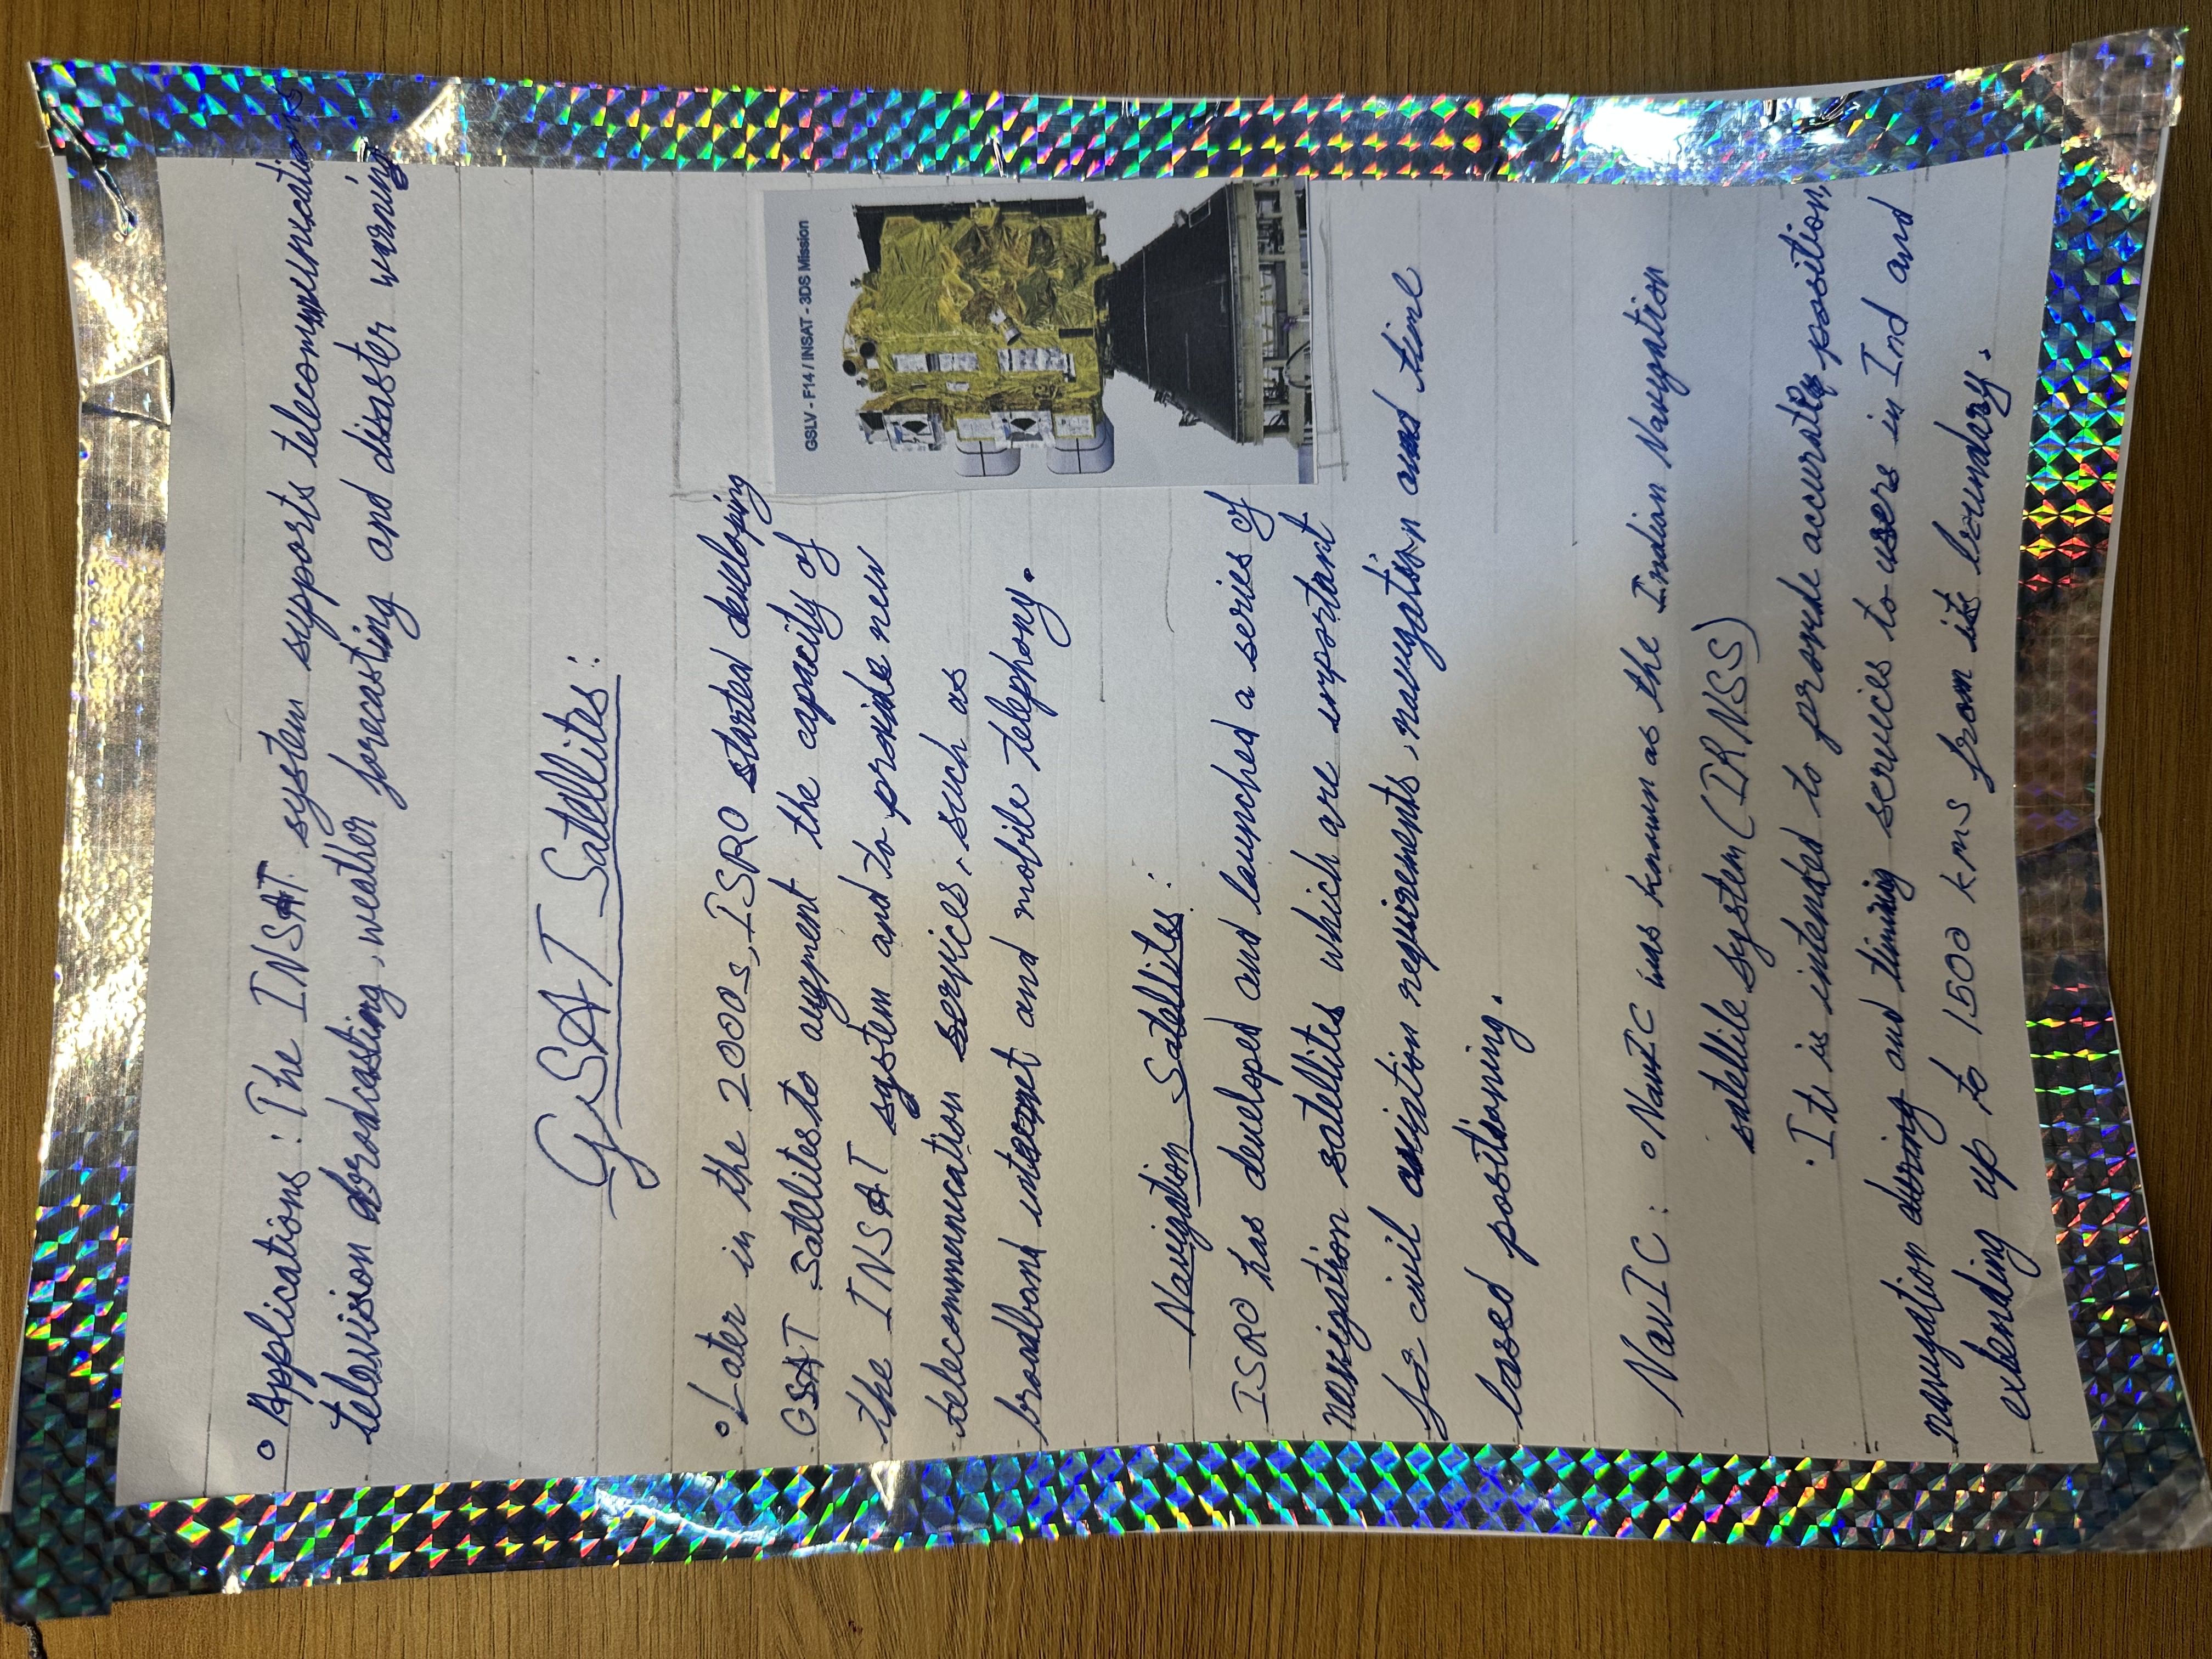 Applications : The INSAT system supports telecommunications
television broadcasting, weather forecasting and disaster warning
GSAT Satellites :
Later in the 2000s, ISRO started developing
GSAT Satellites to augment the capacity of
the INSAT system and to provide new
telecommunication services, such as
broadband internet and mobile telephony.
GSLV - F14 / INSAT - 3DS Mission
Navigation Satellites :
ISRO has developed and launched a series of
navigation satellites which are important
for civil aviation requirements, navigation and time
based positioning.
NavIC : NavIC was known as the Indian Navigation
satellite system (IRNSS)
It is intended to provide accurate position,
navigation during and timing services to users in Ind and
extending up to 1500 kms from its boundary.